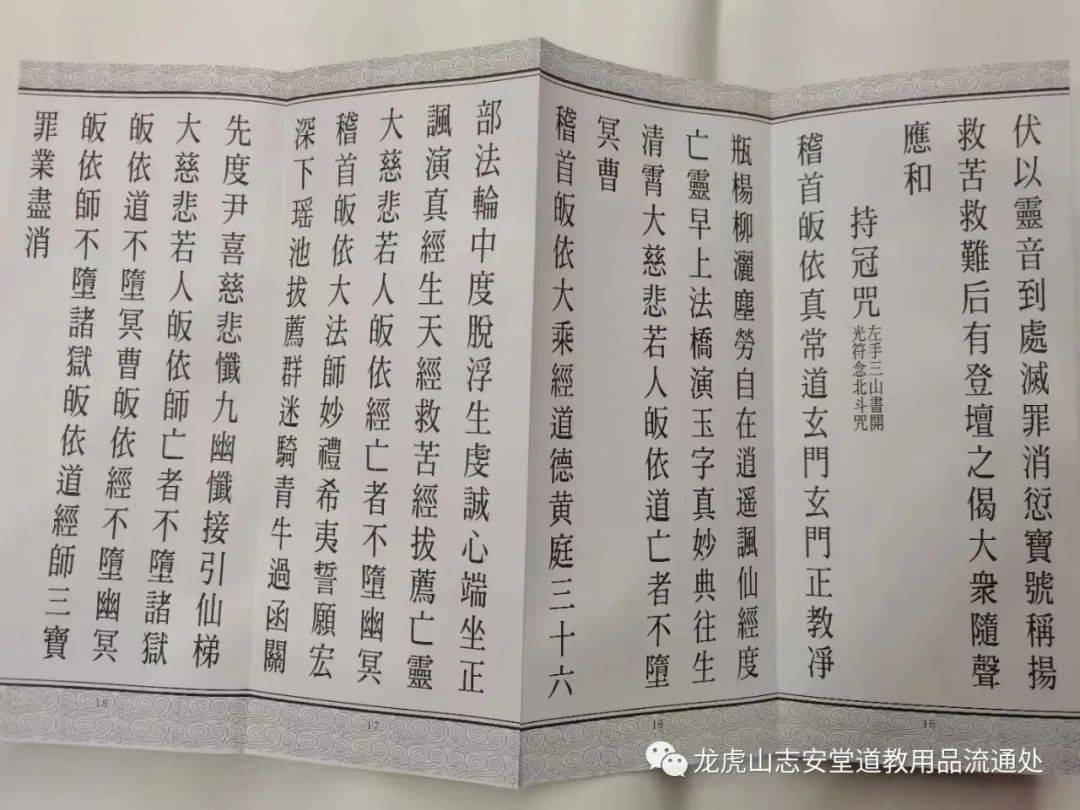 伏以靈音到處滅罪消愆寶號稱揚
救苦救難后有登壇之偈大衆隨聲
應和
持冠咒
左手三山書開
光符念北斗咒
稽首皈依真常道玄門玄門正教凈
瓶楊柳灑塵勞自在逍遥諷仙經度
亡靈早上法橋演玉字真妙典往生
清霄大慈悲若人皈依道亡者不墮
冥曹
稽首皈依大乘經道德黄庭三十六
部法輪中度脫浮生虔誠心端坐正
諷演真經生天經救苦經拔薦亡靈
大慈悲若人皈依經亡者不墮幽冥
稽首皈依大法師妙禮希夷誓願宏
深下瑶池拔薦群迷騎青牛過函關
先度尹喜慈悲懺九幽懺接引仙梯
大慈悲若人皈依師亡者不墮諸獄
皈依道不墮冥曹皈依經不墮幽冥
皈依師不墮諸獄皈依道經師三寶
罪業盡消
15
16
17
18
龙虎山志安堂道教用品流通处